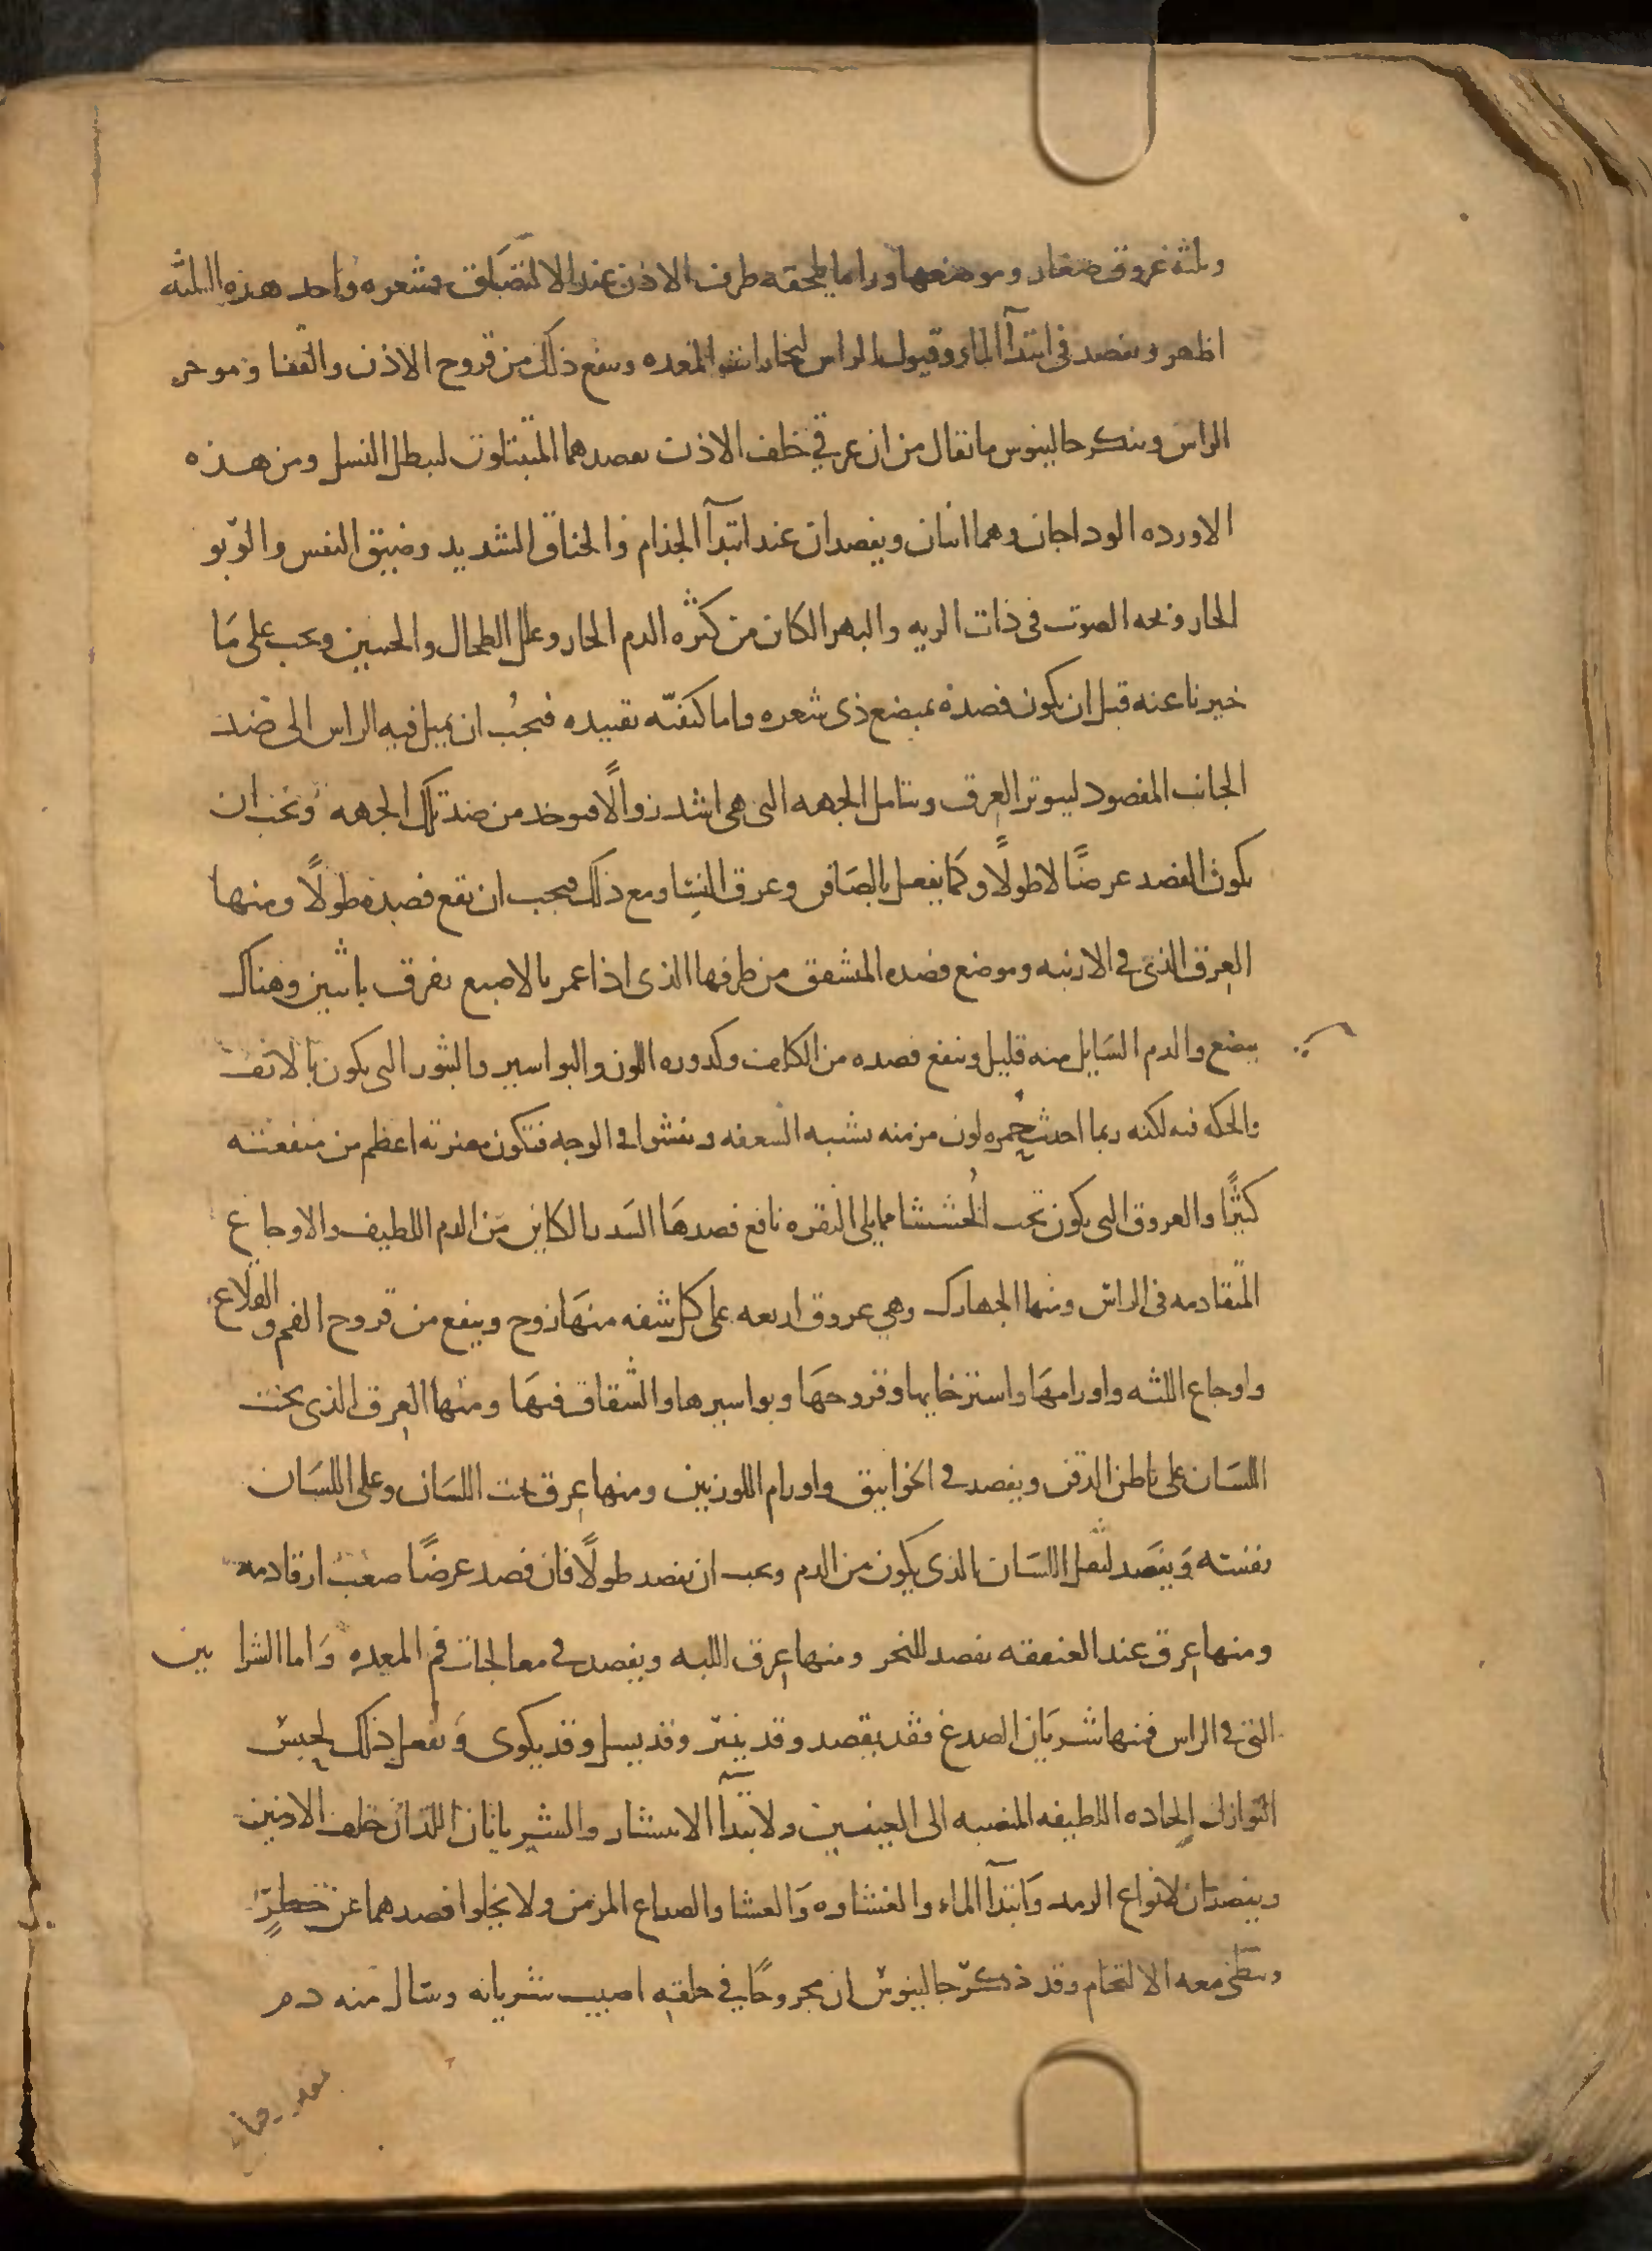 وثلثه عروق صغار وموضعها ورا ما يلحقه طرف الاذن عند الالتصاق بشعره واحد هذه الثلثه
اظهر ويفصد في ابتدآ الماء وقبول الراس لبخارات المعده وينفع ذلك من قروح الاذن والقفا وموخر
الراس وينكر جالينوس ما يقال من ان عرقي خلف الاذن يفصدهما المتبتلون ليبطل النسل ومن هذه
الاورده الوداجان وهما اثنان ويفصدان عند ابتدآ الجذام والخناق الشديد وضيق النفس والربو
الحار وبحه الصوت في ذات الريه والبهر الكائن من كثره الدم الحار وعلل الطحال والجنبين ويجب على مَا
خبرنا عنه قبل ان يكون فصده بمبضع ذي شعره واما كيفيّه تقييده فيجبُ ان يميل فيه الراس الى ضد
الجانب المفصود ليتوتر العرق ويتامل الجهه التى هي اشد زوالًا فيوخد من ضد تلك الجهه ويجب ان
يكون الفصد عرضًا لا طولًا وكما يفعل بالصَافن وعرق النسا ومع ذلك فيجب ان يقع فصده طولًا ومنها
العرق الذي في الارنبه وموضع فصده المتشقق من طرفها الذي اذا غمر بالاصبع تفرق باثنين وهناك
يبضع والدم السَايل منه قليل وينفع فصده من الكلف وكدوره اللون والبواسير والبثور التي يكون بالانف
والحكه فيه لكنه ربما احدث حُمره لون مزمنه تشبه السعفه وينشوا في الوجه فتكون مضرته اعظم من منفعته
كثيرًا والعروق التي يكون تحت الخُششا مما يلي النقره نافع فصدهَا السَدر الكاين من الدم اللطيف والاوجاع
المتقادمه في الراس ومنها الجهارك وهي عروق اربعه على كل شفه منهَا زوج وينفع من قروح الفم والقلاع
واوجاع اللثه واورامهَا واسترخايها وقروحهَا وبواسيرها والشقاق فيهَا ومنها العرق الذي تحت
اللسَان على باطن الدقن ويفصد في الخوانيق واورام اللوزتين ومنها عرق تحت اللسَان وعلى اللسَان
نفسه وَيفصَد لثقل اللسَان الذي يكون من الدم ويجب ان يفصد طولًا فان فصد عرضًا صعب ارقا دمه
ومنها عرق عند العنفقه يفصد للبخر ومنها عرق اللبه ويفصد في معالجات فم المعده وَاما الشرا يين
التي في الراس فمنها شريَان الصدغ فقد يفصد وقد يبتر وقد يسل وقد يكوى وَيفعل ذلك لحبس
النوازل الحاده اللطيفه المنصبه الى العينين ولابتدآ الانتشار والشريانان اللذان خلف الاذنين
ويفصدَان لانواع الرمد وَابتدآ الماء والغشاوه وَالعشا والصداع المزمن ولا يخلوا فصدهما عن خطرٍ
ويبطى معه الالتحام وقد ذكر جالينوس ان مجروحًا في حلقه اصيب شريانه وسَال منه دم